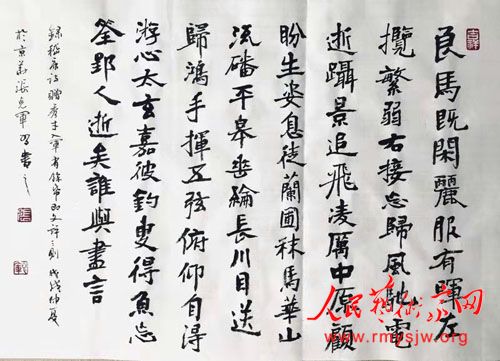 良馬既閑麗服有暉左
攬繁弱右接忘歸風馳電
逝躡景追飛凌厲中原顧
盼生姿息徒蘭圃秣馬華山
流磻平皋垂綸長川目送
歸鴻手揮五弦俯仰自得
游心太玄嘉彼釣叟得魚忘
筌郢人逝矣誰與盡言
錄嵇康詩贈秀才入軍 詩二則 戊戌仲夏
於京華張克軍 書之
吉祥
人民艺术家网
www.rmysjw.org